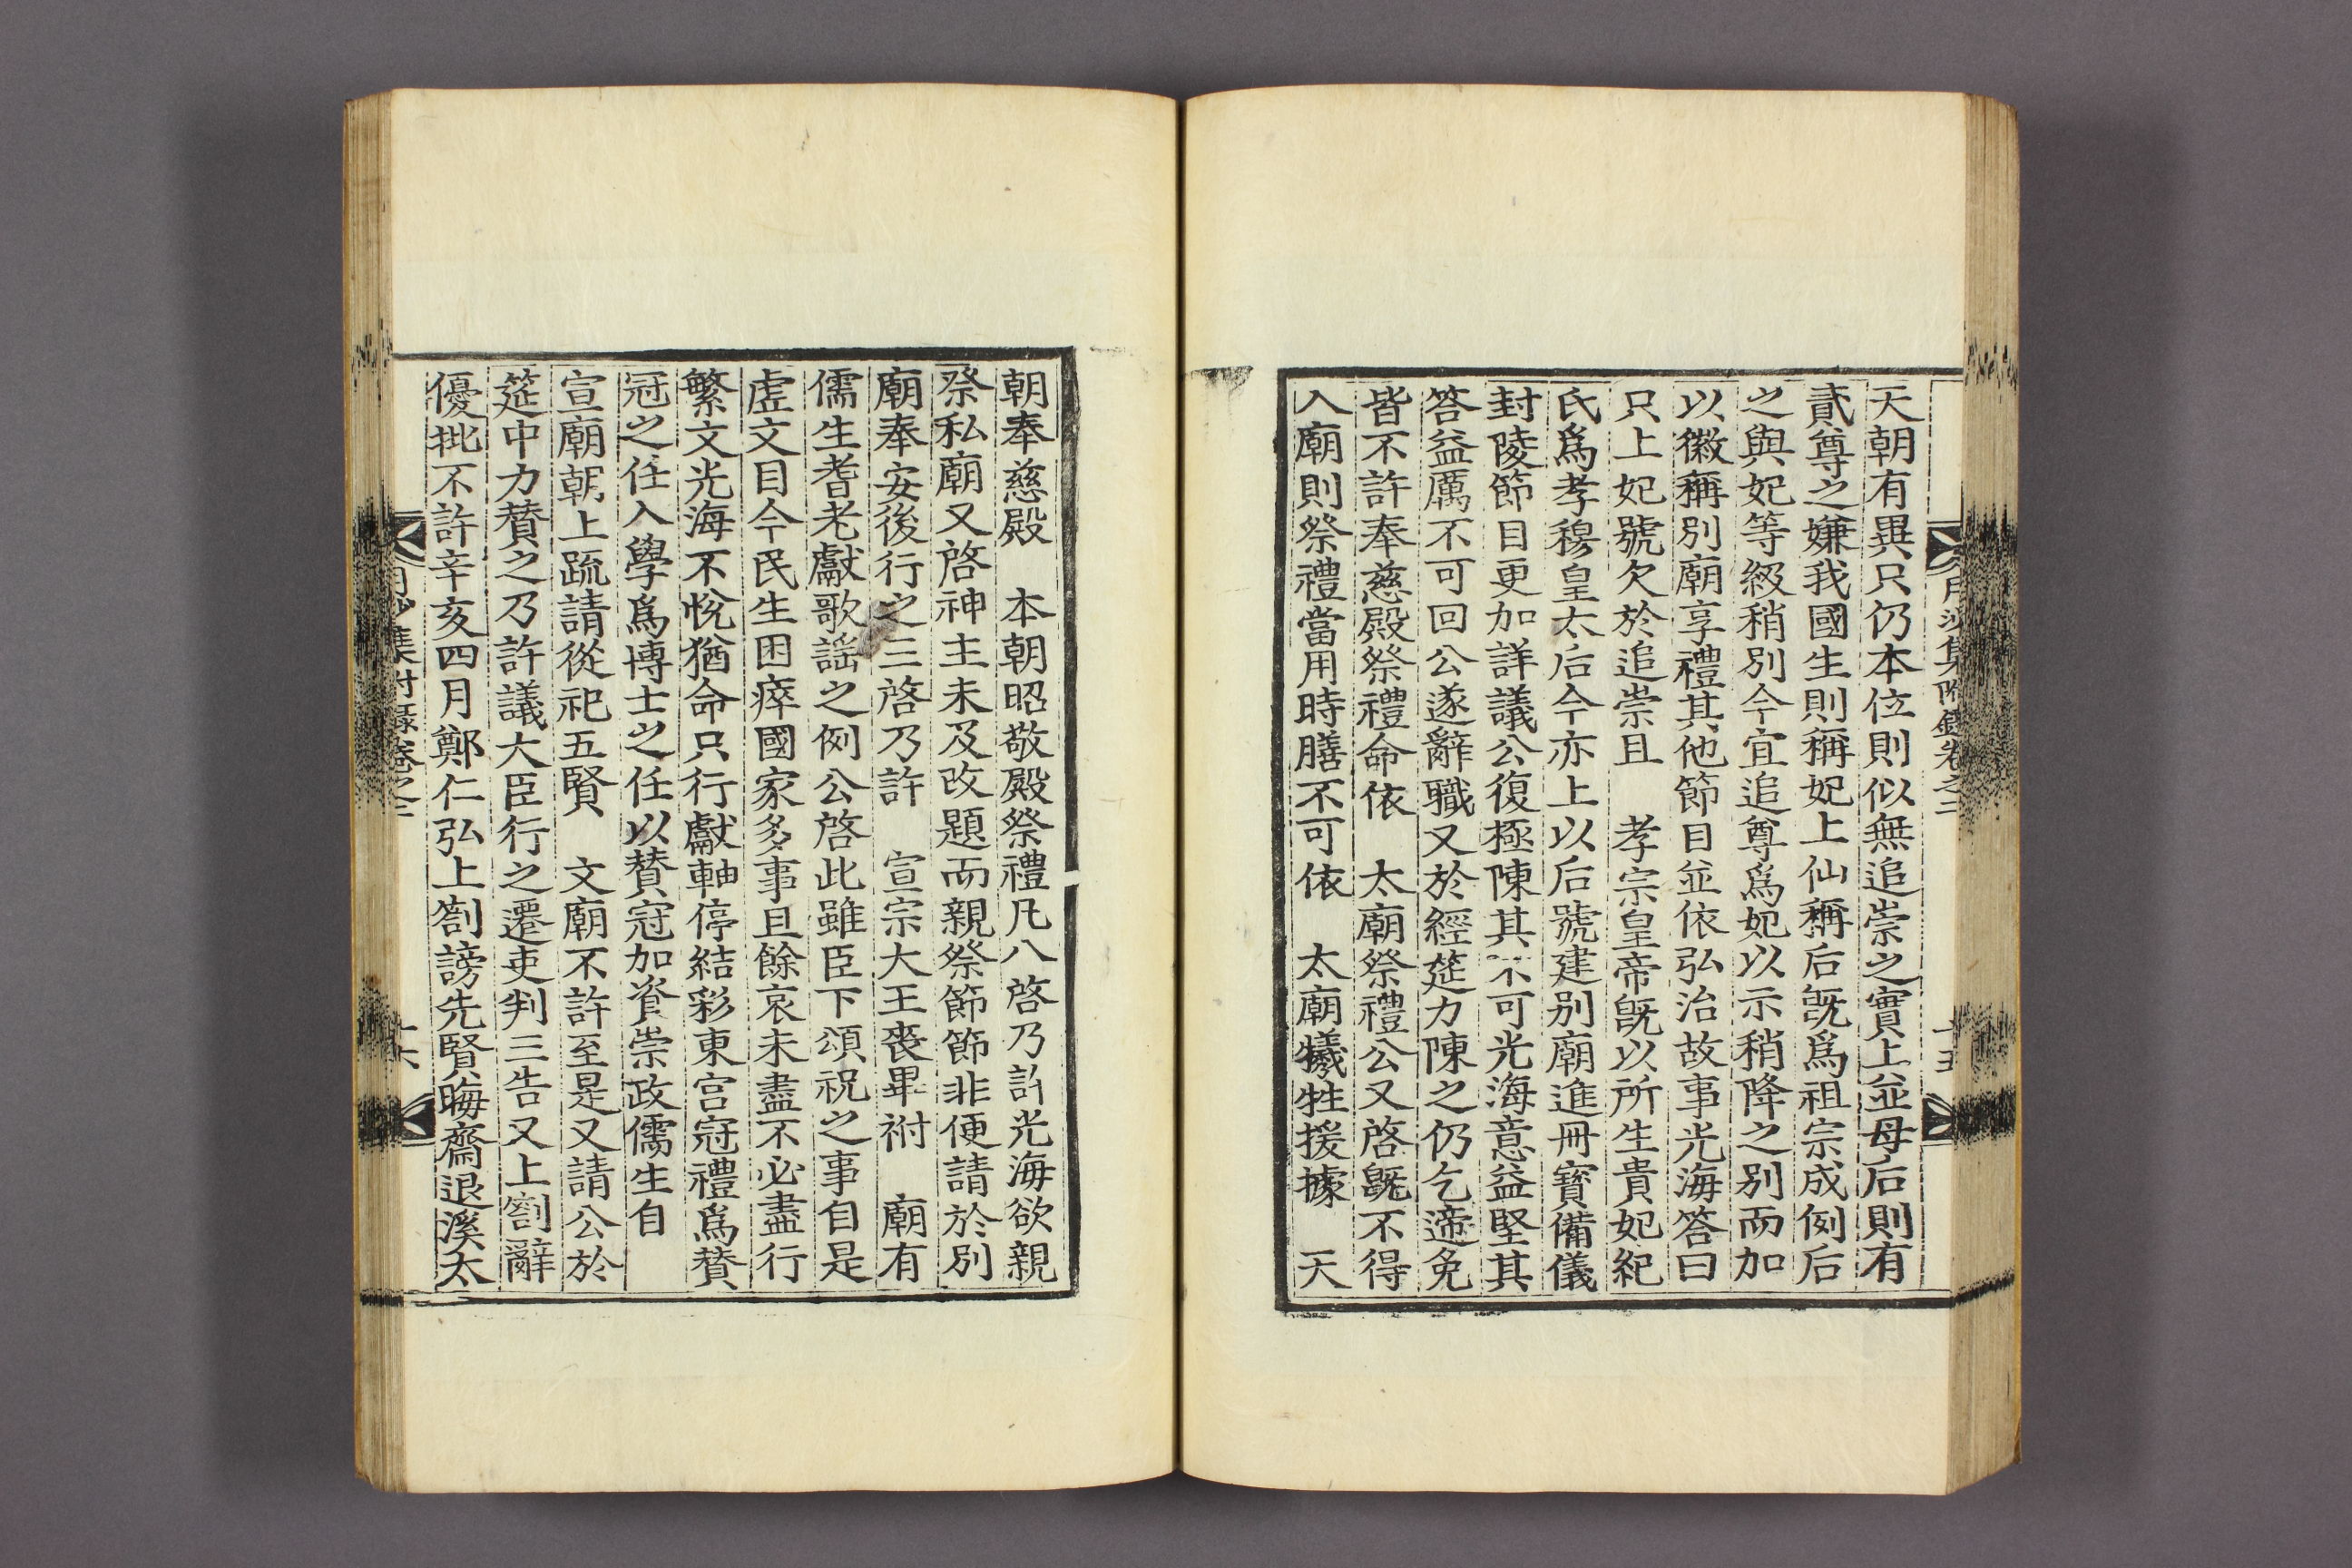 天朝有異只仍本位則似無追崇之實上並母后則有
貳尊之嫌我國生則稱妃上仙稱后旣爲祖宗成例后
之與妃等級稍別今宜追尊爲妃以示稍降之別而加
以徽稱別廟享禮其他節目並依弘治故事光海答曰
只上妃號欠於追崇且　孝宗皇帝旣以所生貴妃紀
氏爲孝穆皇太后今亦上以后號建別廟進冊寶備儀
封陵節目更加詳議公復極陳其不可光海意益堅其
答益厲不可回公遂辭職又於經筵力陳之仍乞遞免
皆不許奉慈殿祭禮命依　太廟祭禮公又啓旣不得
入廟則祭禮當用時膳不可依　太廟犧牲援據　天
月沙集附錄卷之二
十五
朝奉慈殿　本朝昭敬殿祭禮凡八啓乃許光海欲親
祭私廟又啓神主未及改題而親祭節節非便請於別
廟奉安後行之三啓乃許　宣宗大王喪畢祔　廟有
儒生耆老獻歌謠之例公啓此雖臣下頌祝之事自是
虛文目今民生困瘁國家多事且餘哀未盡不必盡行
繁文光海不悅猶命只行獻軸停結彩東宮冠禮爲贊
冠之任入學爲博士之任以贊冠加資崇政儒生自
宣廟朝上疏請從祀五賢　文廟不許至是又請公於
筵中力贊之乃許議大臣行之遷吏判三告又上劄辭
優批不許辛亥四月鄭仁弘上劄謗先賢晦齋退溪太
月沙集附錄卷之二
十六